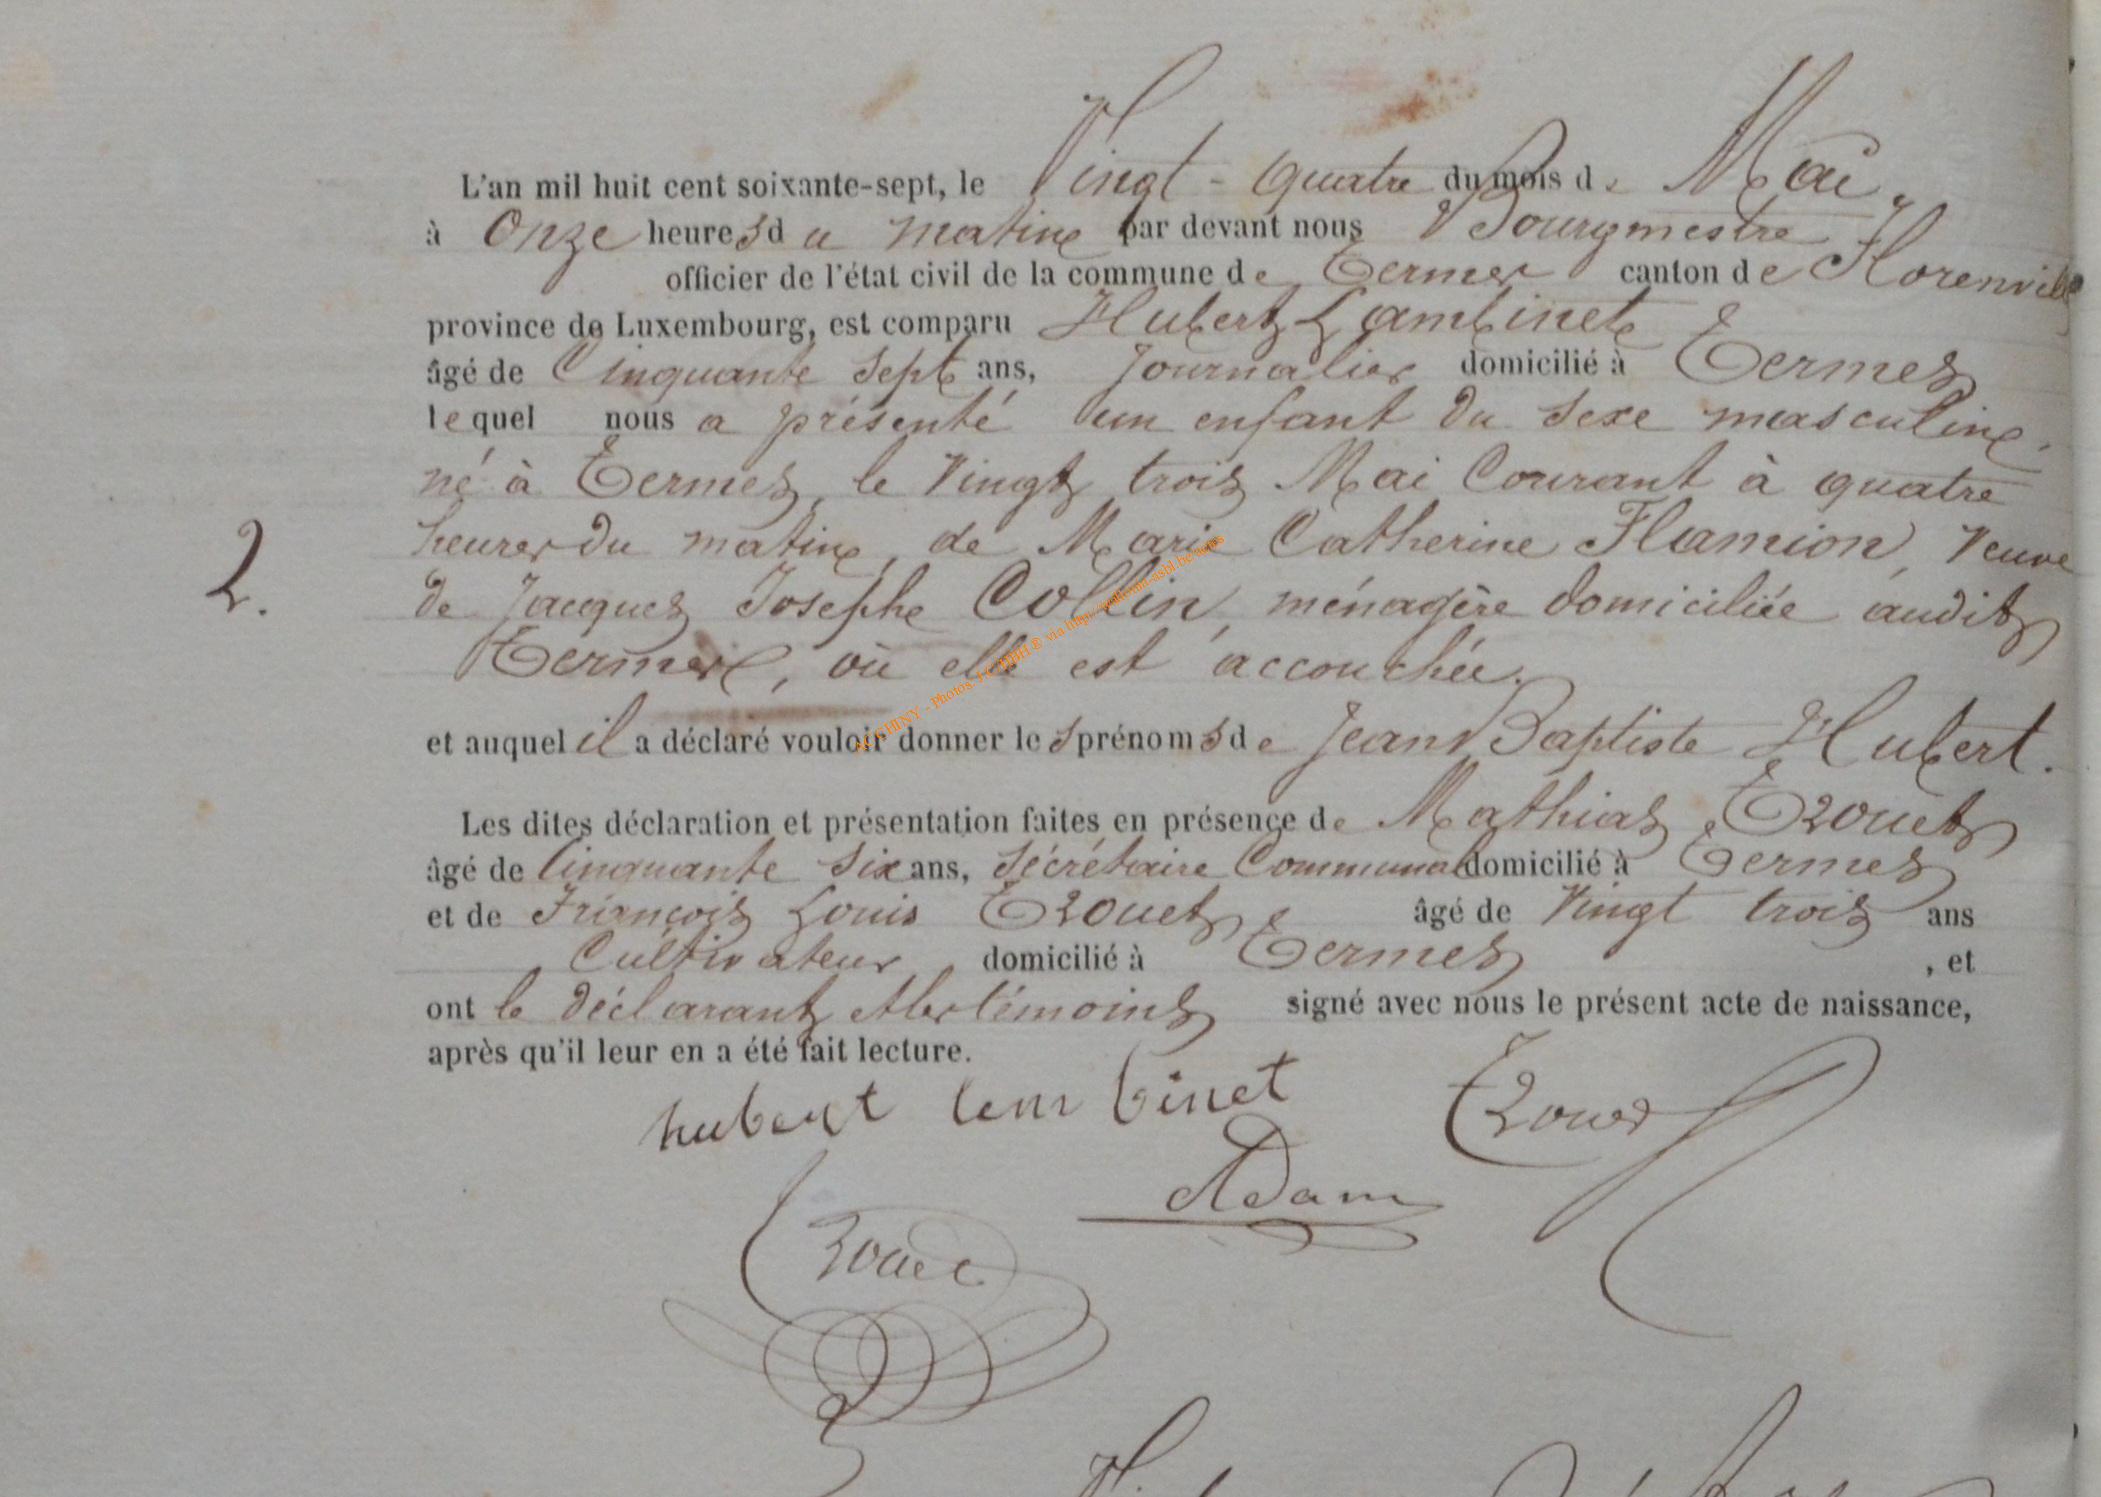 L'an mil huit cent soixante-sept, le Vingt-quatre du mois de Mai
à Onze heures du matin par devant nous Bourgmestre
officier de l'état civil de la commune de Termes canton de Florenville
province de Luxembourg, est comparu Hubert Lambinet
âgé de Cinquante sept ans, Journalier domicilié à Termes
lequel nous a présenté un enfant du sexe masculin,
né à Termes, le Vingt trois Mai Courant à quatre
heures du matin, de Marie Catherine Flamion, Veuve
2. de Jacques Josephe Collin, ménagère domiciliée audit
Termes, où elle est accouchée.
et auquel il a déclaré vouloir donner les prénoms de Jean Baptiste Hubert.
Les dites déclaration et présentation faites en présence de Mathias Erouet
âgé de Cinquante six ans, Sécrétaire Communal domicilié à Termes
et de François Louis Erouet âgé de Vingt trois ans
Cultivateur domicilié à Termes, et
ont le déclarant et les témoins signé avec nous le présent acte de naissance,
après qu'il leur en a été fait lecture.
hubert lambinet
Adam